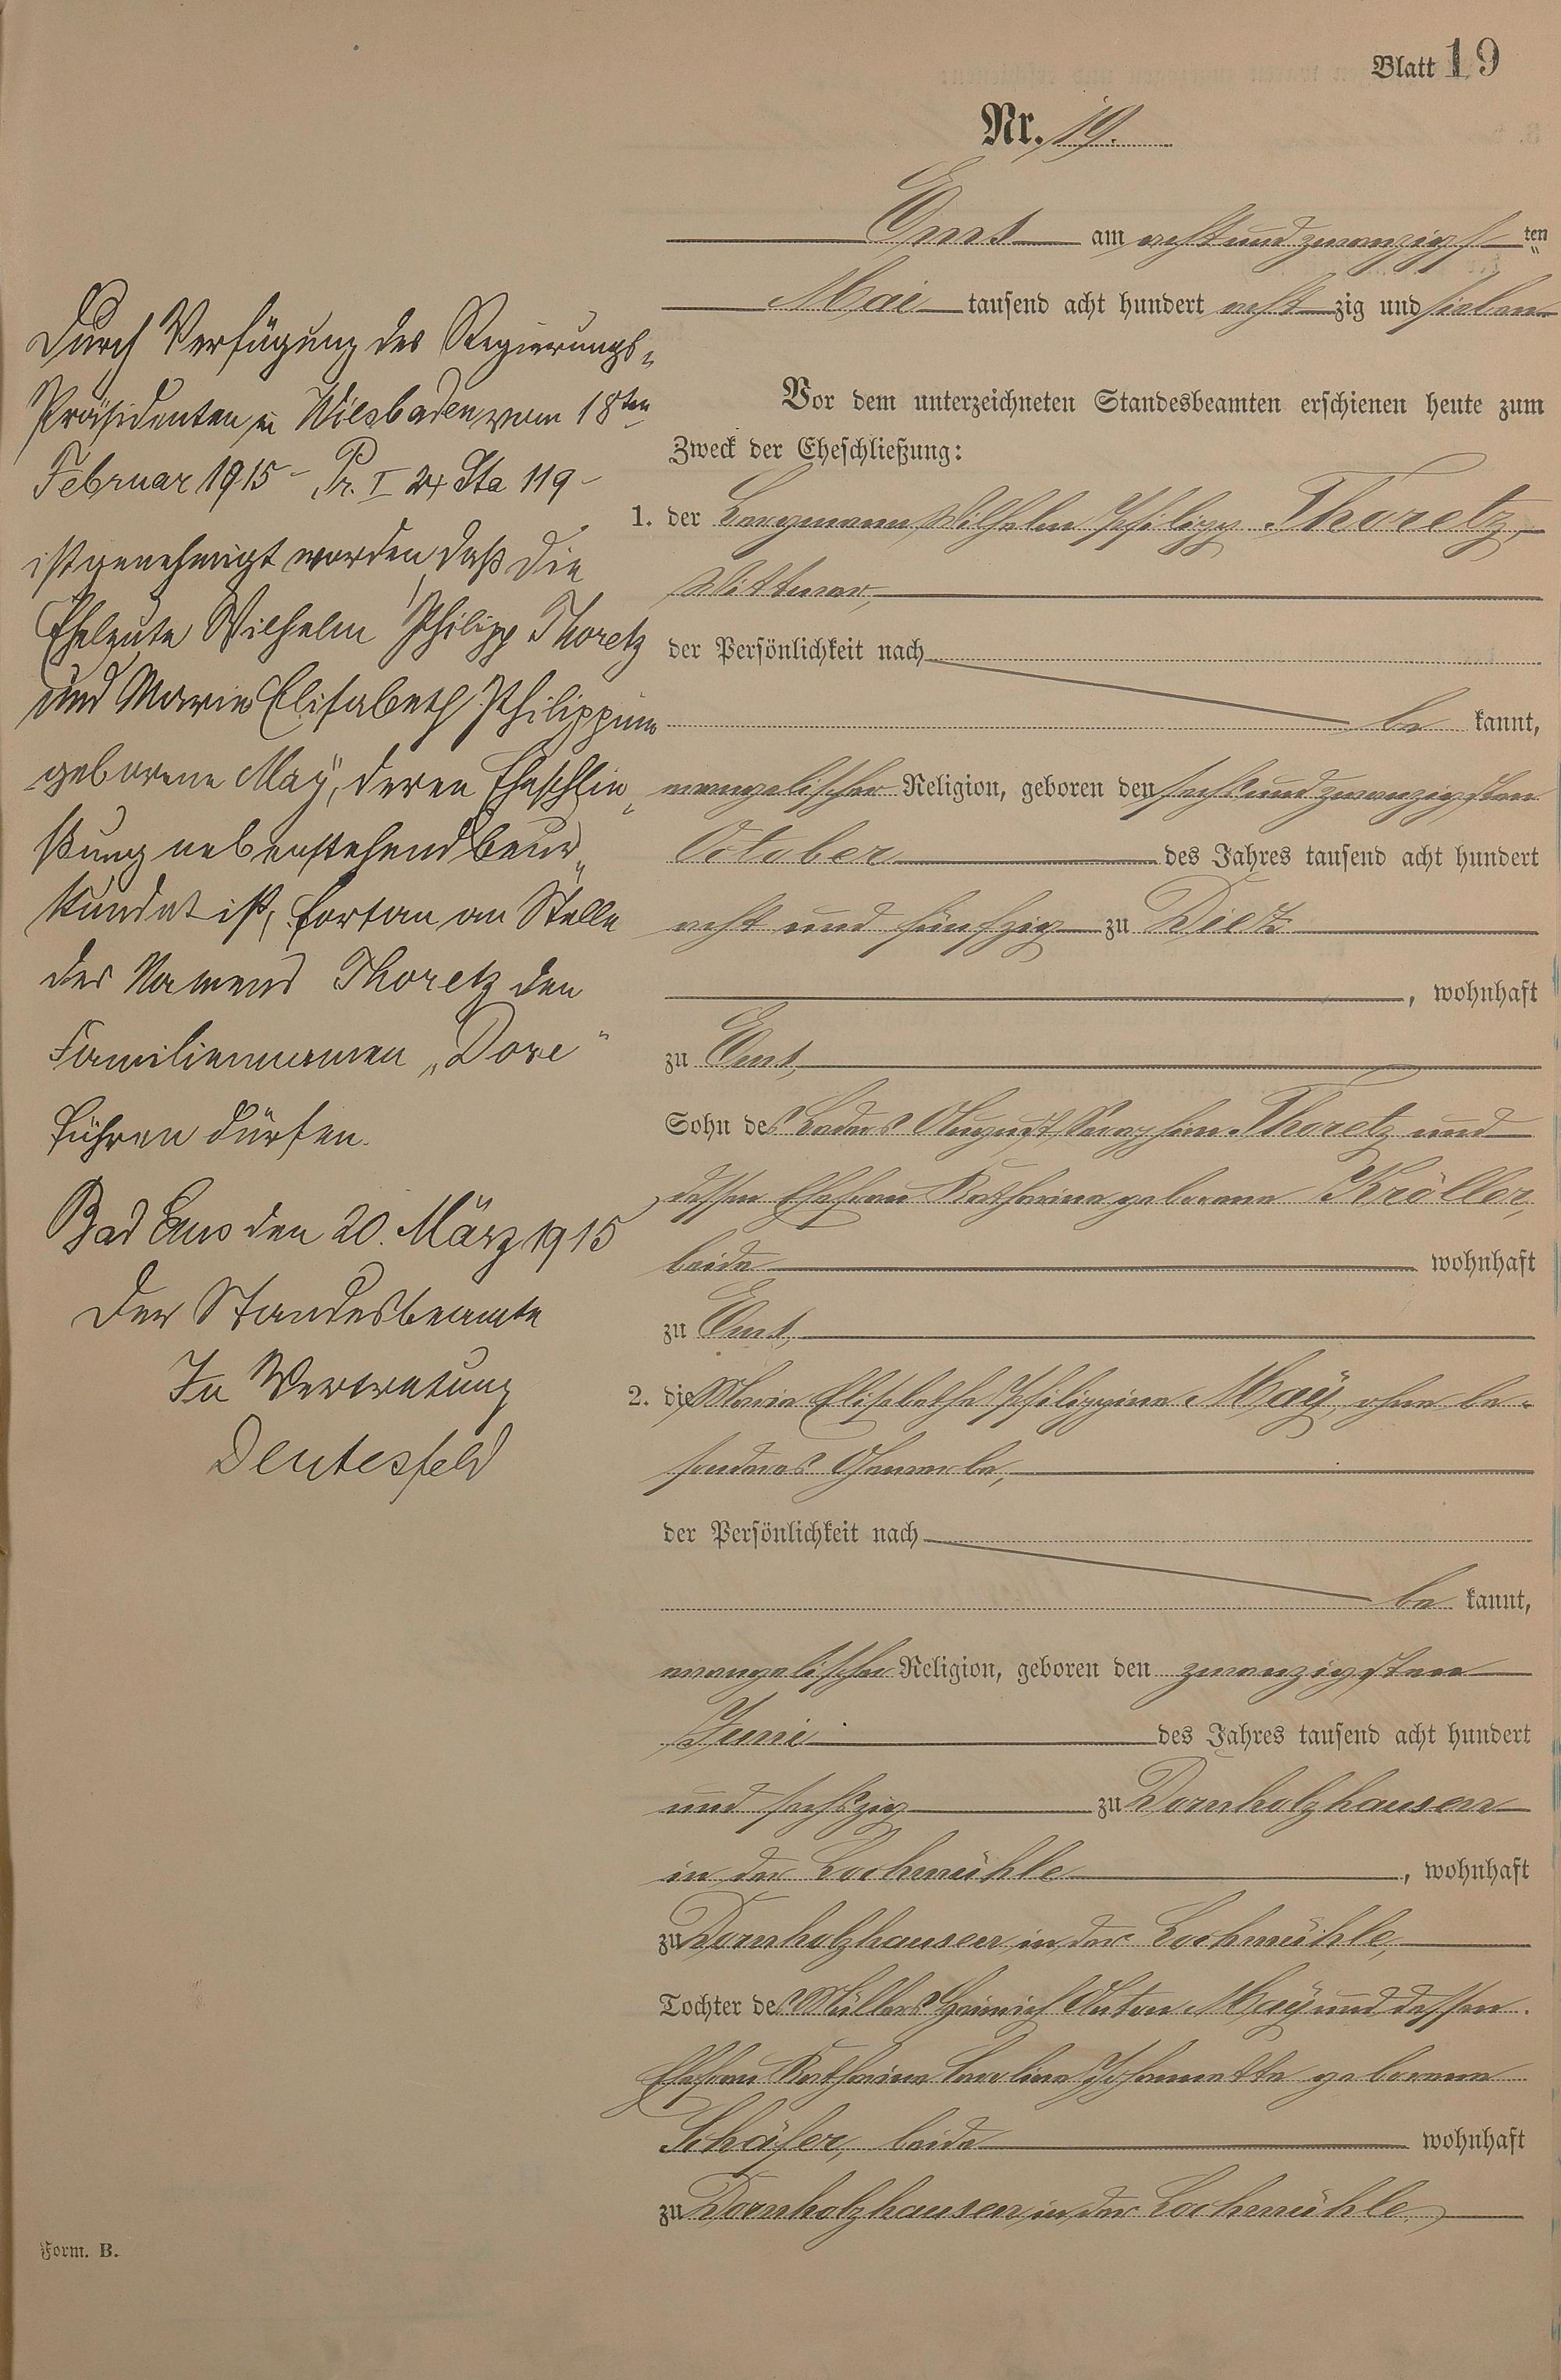 Blatt 19
Nr. 19.
Ems am acht und zwanzigsten
Mai tausend acht hundert acht zig und sieben
Vor dem unterzeichneten Standesbeamten erschienen heute zum
Zweck der Eheschließung:
1. der Bergmann Wilhelm Philipp Thoretz,
Wittwer,
der Persönlichkeit nach
be kannt,
evangelischer Religion, geboren den sechs und zwanzigsten
October des Jahres tausend acht hundert
acht und fünfzig zu Diez
, wohnhaft
zu Ems,
Sohn des Baders August Seraphim Thoretz und
dessen Ehefrau Katharina geborene Kröller,
beide wohnhaft
zu Ems,
2. die Marie Elisabethe Philippine Maÿ, ohne be-
sonderes Gewerbe,
der Persönlichkeit nach
be kannt,
evangelischer Religion, geboren den zwanzigsten
Juni des Jahres tausend acht hundert
und sechszig zu Dornholzhausen
in der Lochmühle, wohnhaft
zu Dornholzhausen in der Lochmühle,
Tochter des Müllers Heinrich Anton Maÿ und dessen
Ehefrau Katharine Karoline Johannette geborene
Schäfer, beide wohnhaft
zu Dornholzhausen in der Lochmühle
Durch Verfügung des Regierungs-
Präsidenten in Wiesbaden vom 18ten
Februar 1915 - Pr. I 24 Sta 119 -
ist genehmigt worden, daß die
Eheleute Wilhelm Philipp Thoretz
und Marie Elisabeth Philippine
geborene Maÿ, deren Eheschlie-
ßung nebenstehend beur-
kundet ist, fortan an Stelle
des Namens Thoretz den
Familiennamen „Dore“
führen dürfen.
Bad Ems den 20. März 1915
Der Standesbeamte
In Vertretung
Deutesfeld
Form. B.